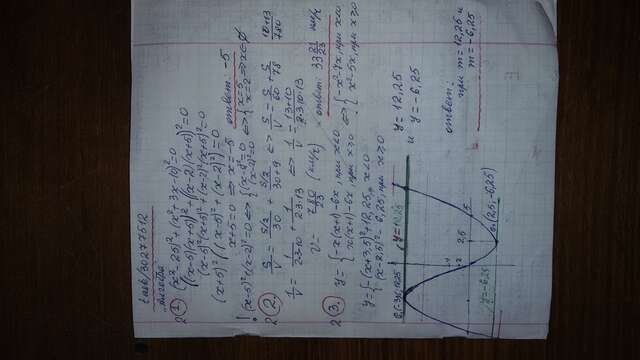 task/30277512
"Алгебра"
2 1) (x²-25)²+(x²+3x-10)²=0
((x-5)(x+5))²+((x-2)(x+5))²=0
(x-5)²(x+5)²+(x-2)²(x+5)²=0
(x+5)²((x-5)²+(x-2)²)=0
x+5=0 ⇒ x=-5 ответ: -5
! (x-5)²+(x-2)²=0 ⇔ {(x-5)²=0 (x-2)²=0 ⇔ {x=5 x=2 ⇒ x∈∅
2 2. S/V = S/2/30 + S/2/30+9 ⇔ S/V = S/60 + S/78 10+13/780
1/V = 1/2·3·10 + 1/2·3·13 ⇔ 1/V = 13+10/2·3·10·13
V = 780/23 (км/ч) ответ: 33 21/23 км/ч
2 3. y = {-x(x+1)-6x, при x<0 x(x+1)-6x, при x≥0 ⇔ {-x²-7x, при x<0 x²-5x, при x≥0
y = {-(x+3,5)²+12,25, x<0 (x-2,5)²-6,25, при x≥0
y = 12,25
и y = -6,25
y=12,25
2,5
5
y=-6,25
(2,5; -6,25)
ответ:
при m = 12,25 и
m = -6,25